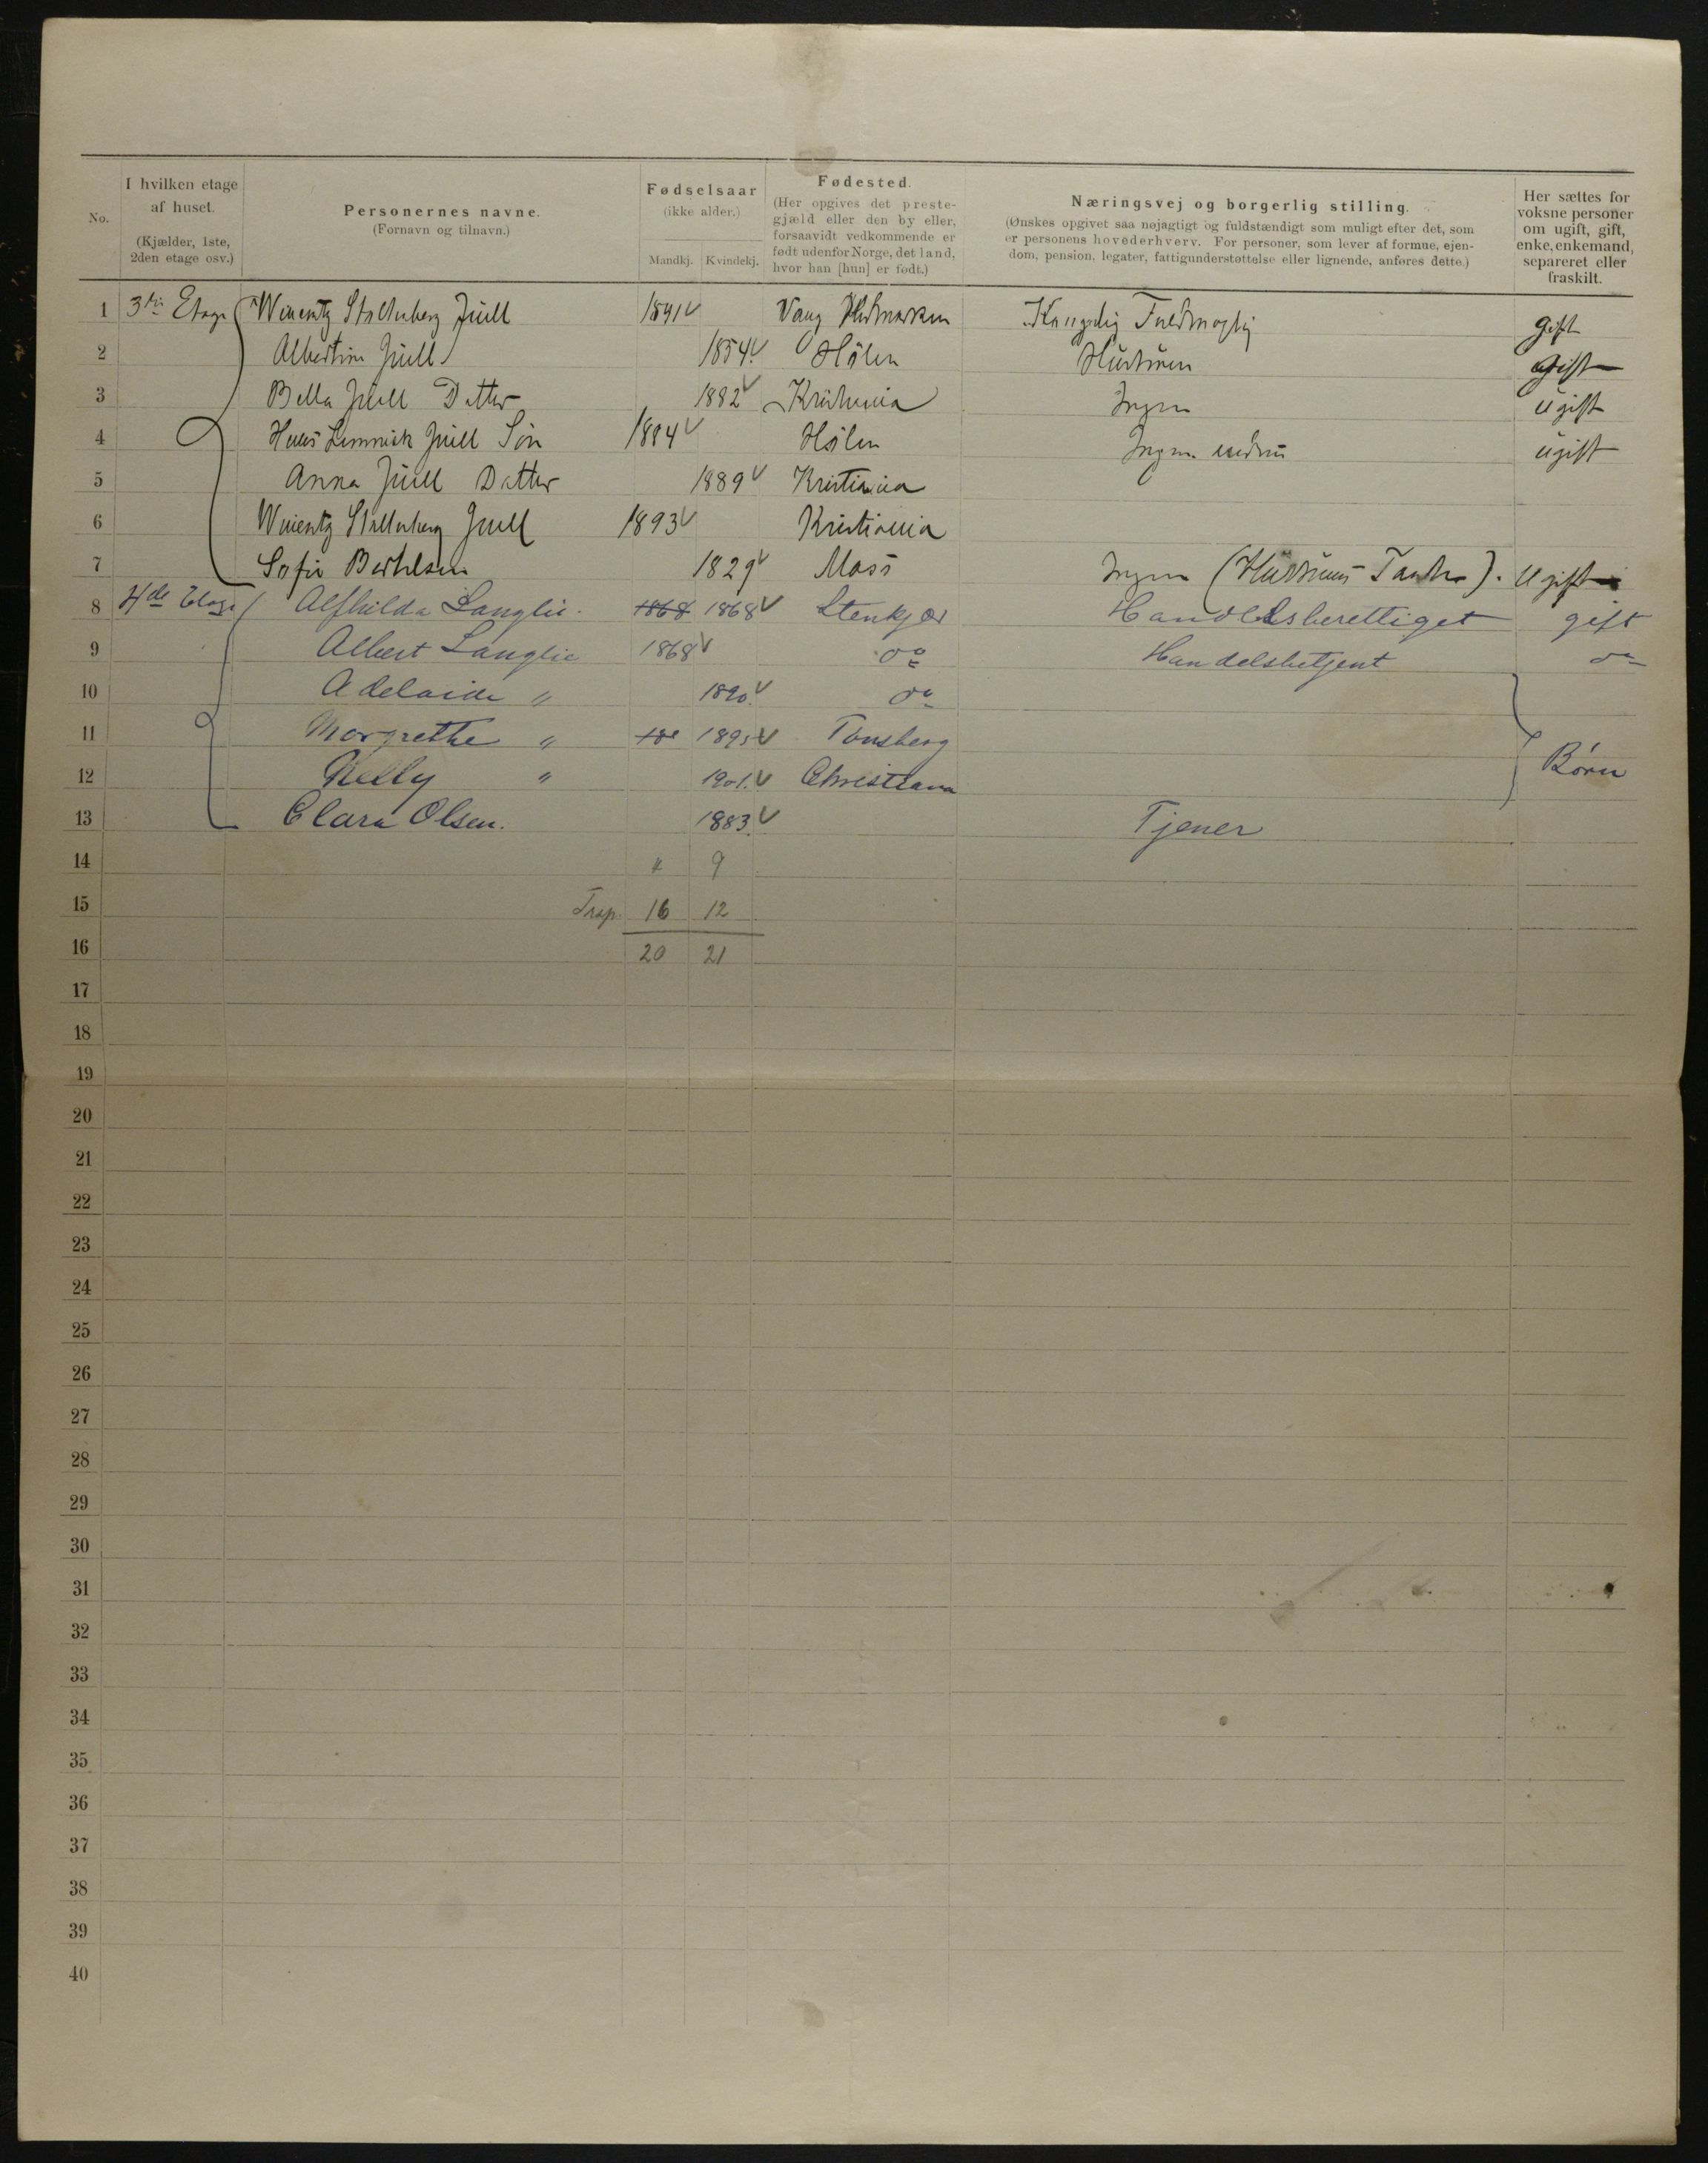 No.
I hvilken etage
af huset.
(Kjælder, 1ste,
2den etage osv.)
Personernes navne.
(Fornavn og tilnavn.)
Fødselsaar
(ikke alder.)
Mandkj. Kvindekj.
Fødested.
(Her opgives det preste-
gjæld eller den by eller,
forsaavidt vedkommende er
født udenfor Norge, det land,
hvor han [hun] er født.)
Næringsvej og borgerlig stilling.
(Ønskes opgivet saa nøjagtigt og fuldstændigt som muligt efter det, som
er personens hovederhverv. For personer, som lever af formue, ejen-
dom, pension, legater, fattigunderstøttelse eller lignende, anføres dette.)
Her sættes for
voksne personer
om ugift, gift,
enke, enkemand,
separeret eller
fraskilt.
1 3die Etage Stoltenberg Jüell Vang Hedmarken Fuldmægtig gift
2 Albertine Jüell 1854 Hølen Hüstrüen gift
3 Bella Jüell Datter 1882 Kristiania Ingen ügift
4 Jüell Søn 1884 Hølen Ingen ügift
5 Anna Jüell Datter 1889 Kristiania
6 Stoltenberg Jüell 1893 Kristiania
7 Sofie Berthelsen 1829 Moss Ingen (Hüstrüens Tante). Ugift
8 4de Etage Alfhilda Langlie. 1868 1868 Stenkjær Handelsberettiget gift
9 Albert Langlie 1868 do Handelsbetjent do
10 Adelaide " 1890. do
11 Margrethe " 189 Tønsberg
12 Nelly " 1901. Christiania Børn
13 Clara Olsen. 1883. Tjener
14 4 9
15 Trsp. 16 12
16 20 21
17
18
19
20
21
22
23
24
25
26
27
28
29
30
31
32
33
34
35
36
37
38
39
40